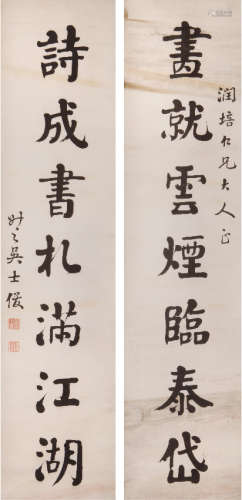 畫就雲煙臨泰岱
润培仁兄大人正
詩成書札滿江湖
吴士俊